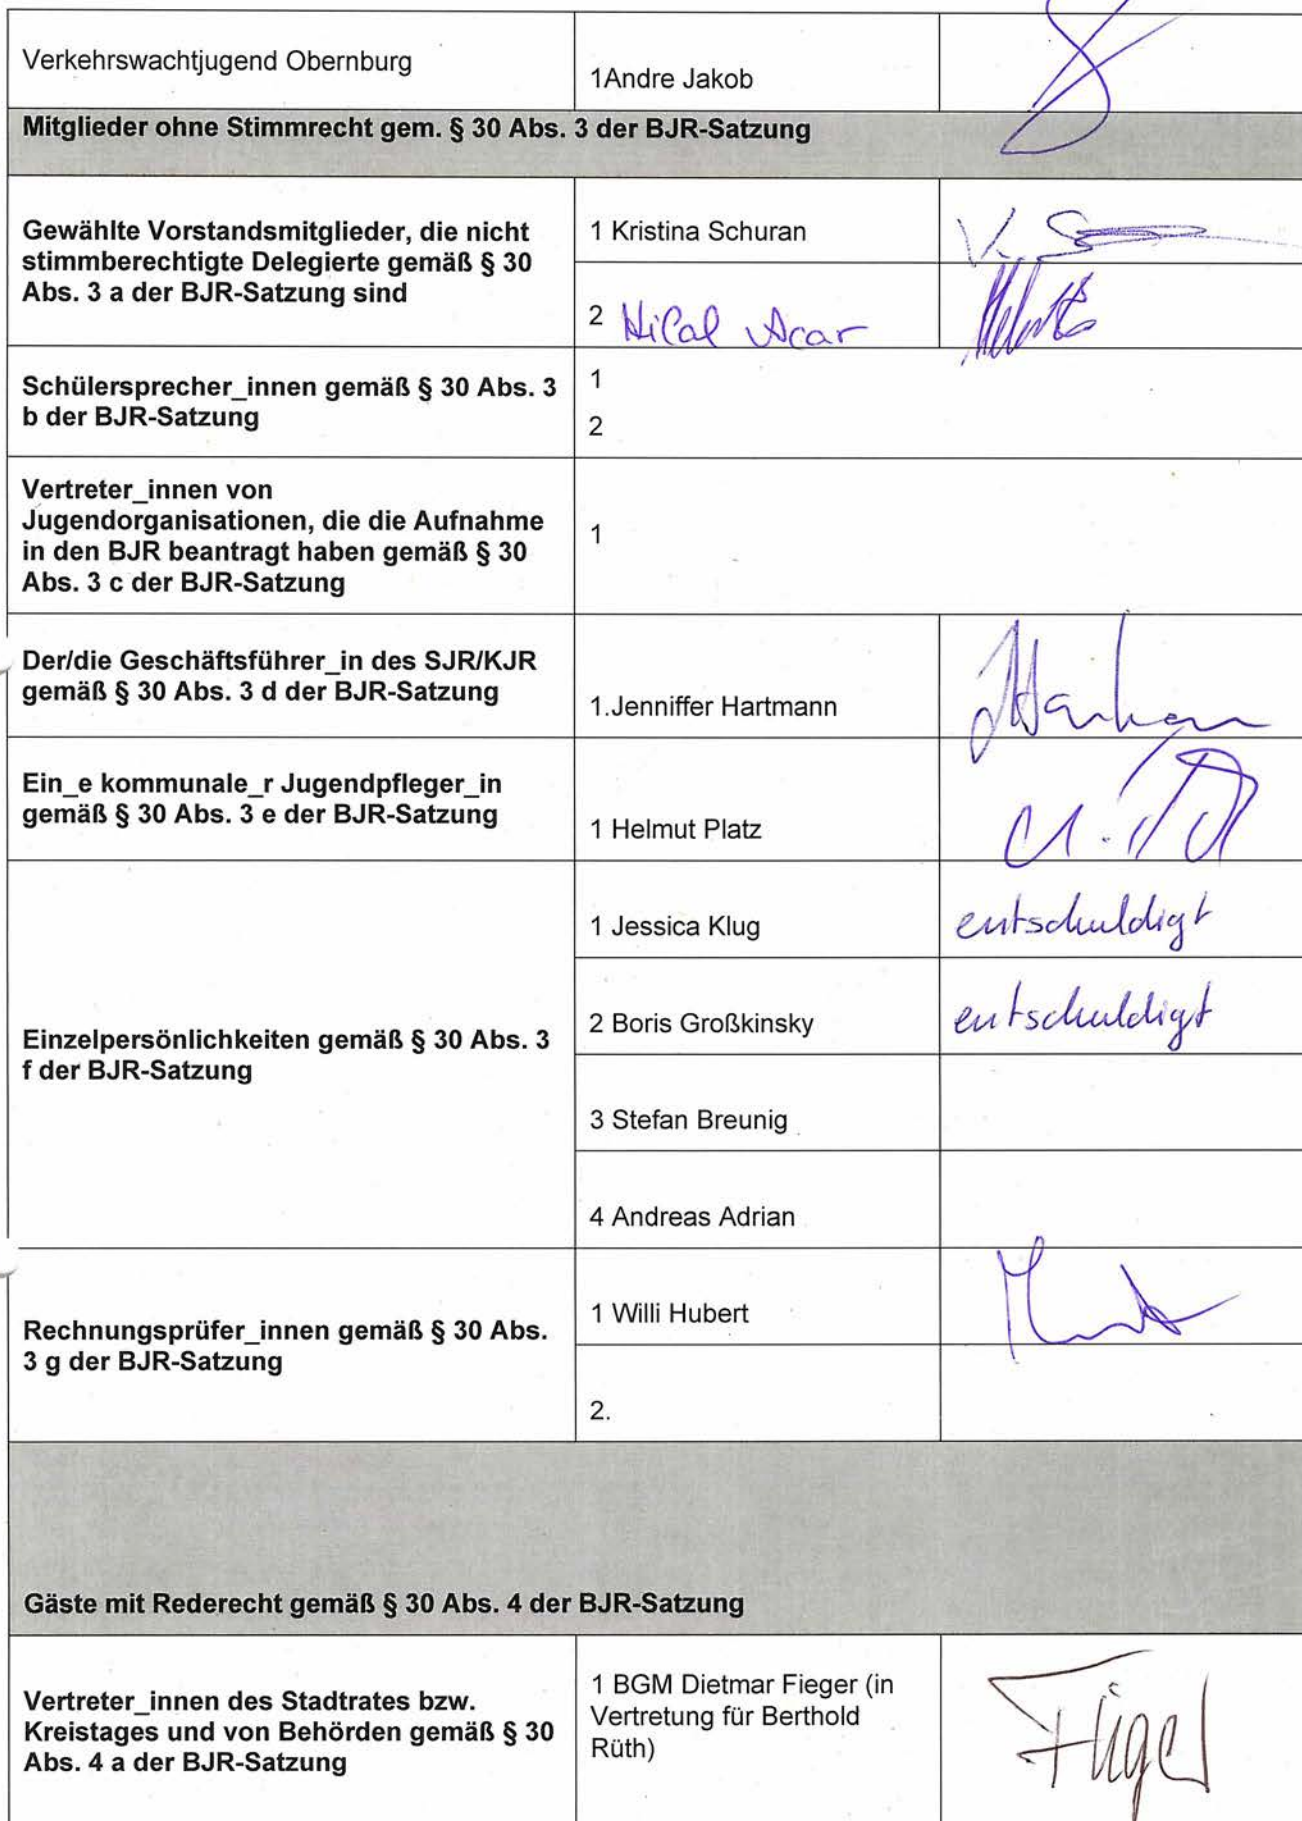 Verkehrswachtjugend Obernburg
1Andre Jakob
Mitglieder ohne Stimmrecht gem. § 30 Abs. 3 der BJR-Satzung
Gewählte Vorstandsmitglieder, die nicht
stimmberechtigte Delegierte gemäß § 30
Abs. 3 a der BJR-Satzung sind
1 Kristina Schuran
2 Hilal Acar
Schülersprecher_innen gemäß § 30 Abs. 3
b der BJR-Satzung
1
2
Vertreter_innen von
Jugendorganisationen, die die Aufnahme
in den BJR beantragt haben gemäß § 30
Abs. 3 c der BJR-Satzung
1
Der/die Geschäftsführer_in des SJR/KJR
gemäß § 30 Abs. 3 d der BJR-Satzung
1.Jenniffer Hartmann
Ein_e kommunale_r Jugendpfleger_in
gemäß § 30 Abs. 3 e der BJR-Satzung
1 Helmut Platz
Einzelpersönlichkeiten gemäß § 30 Abs. 3
f der BJR-Satzung
1 Jessica Klug
entschuldigt
2 Boris Großkinsky
entschuldigt
3 Stefan Breunig
4 Andreas Adrian
Rechnungsprüfer_innen gemäß § 30 Abs.
3 g der BJR-Satzung
1 Willi Hubert
2.
Gäste mit Rederecht gemäß § 30 Abs. 4 der BJR-Satzung
Vertreter_innen des Stadtrates bzw.
Kreistages und von Behörden gemäß § 30
Abs. 4 a der BJR-Satzung
1 BGM Dietmar Fieger (in
Vertretung für Berthold
Rüth)